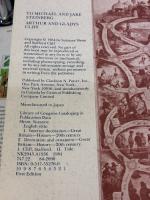 TO MICHAEL AND JAKE
STEINBERG
ARTHUR AND GLADYS
CLIFF
Copyright © 1984 by Suzanne
Slesin and Stafford Cliff
All rights reserved. No part of
this book may be reproduced or
transmitted in any form or by any
means, electronic or mechanical,
including photocopying, recording,
or by any information storage and
retrieval system, without permission
in writing from the publisher.
Published by Clarkson N. Potter, Inc.,
One Park Avenue, New York,
New York 10016, and simultaneously
in Canada by General Publishing
Company Limited
Manufactured in Japan
Library of Congress Cataloging in
Publication Data
Slesin, Suzanne.
English style.
1. Interior decoration—Great
Britain—History—20th century.
2. Decoration and ornament—Great
Britain—History—20th century.
I. Cliff, Stafford. II. Title.
NK2043.A1S56 1984
747.22
10 9 8 7 6 5 4 3 2 1
First Edition